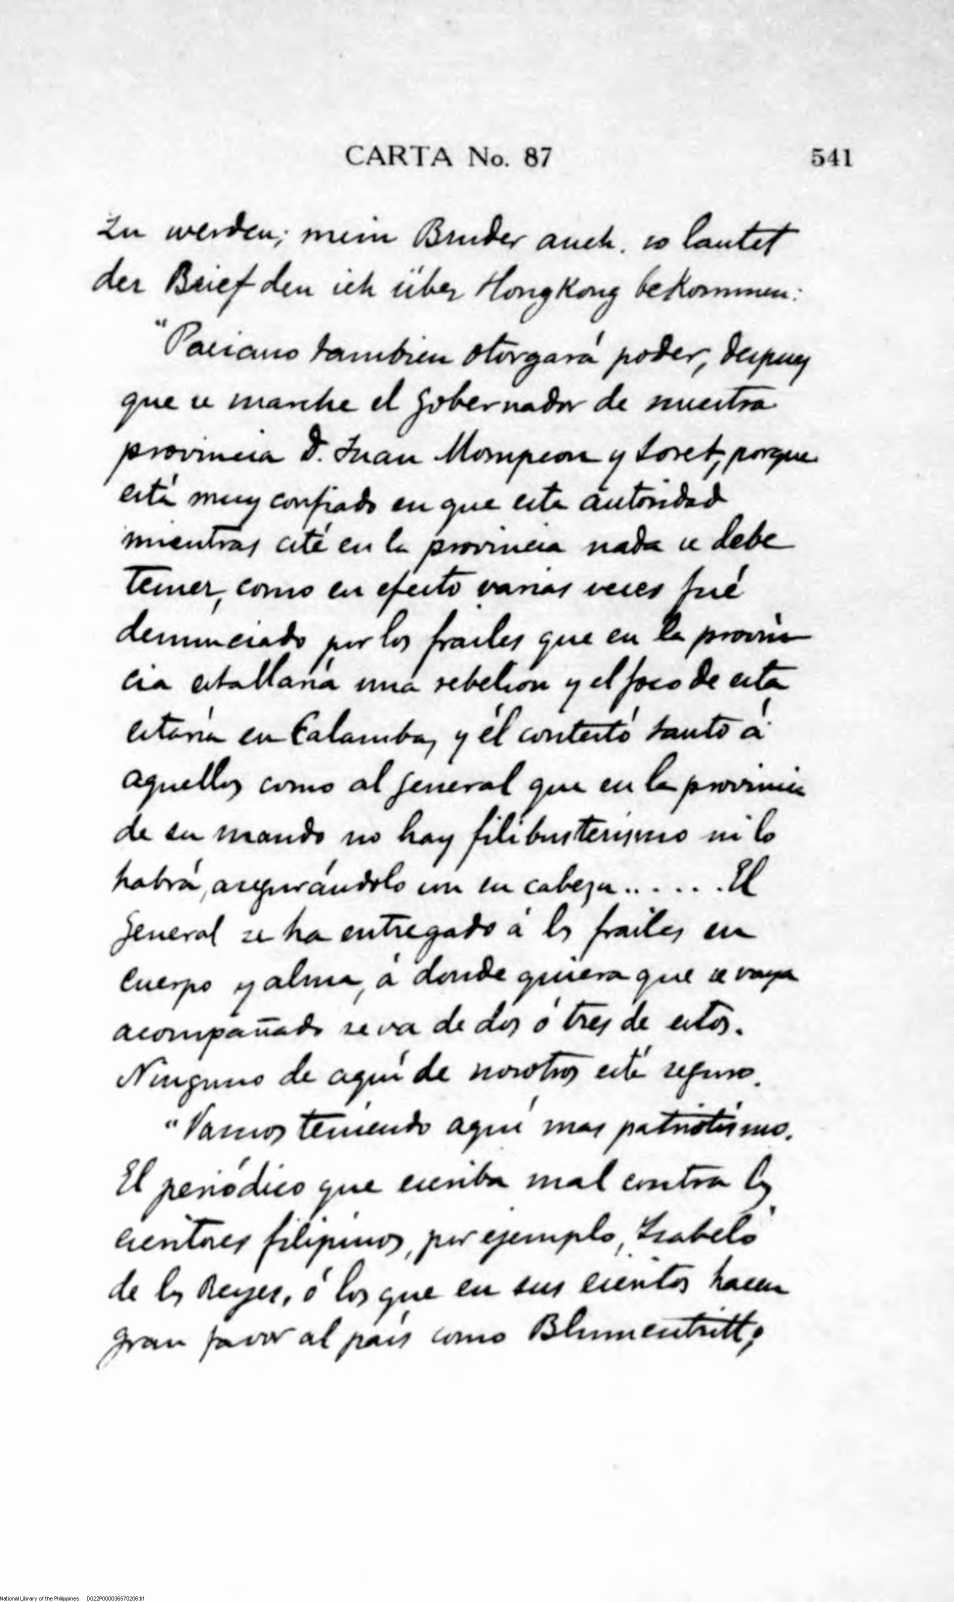 CARTA No. 87
541
zu werden; mein Bruder auch. so lautet
der Brief den ich über HongKong beKommen:
"Paciano tambien otorgará poder, despues
que se marche el Gobernador de nuestra
provincia D. Juan Mompeon y Loret, porque
está muy confiado en que esta autoridad
mientras esté en la provincia nada se debe
temer, como en efecto varias veces fué
denunciado por los frailes que en la provin
cia estallaria una rebelion y el foco de esta
estaria en Calamba, y él contestó tanto á
aquellos como al General que en la provincia
de su mando no hay filibusterismo ni lo
habrá, asegurándolo con su cabeza . . . . . . El
General se ha entregado á los frailes en
cuerpo y alma, á donde quiera que se vaya
acompañado se va de dos ó tres de estos.
Ninguno de aquí de nosotros está seguro.
"Vamos teniendo aquí mas patriotismo.
El periódico que escriba mal contra los
escritores filipinos, por ejemplo, Isabelo
de los Reyes, ó los que en sus escritos hacen
gran favor al país como Blumentritt,
National Library of the Philippines